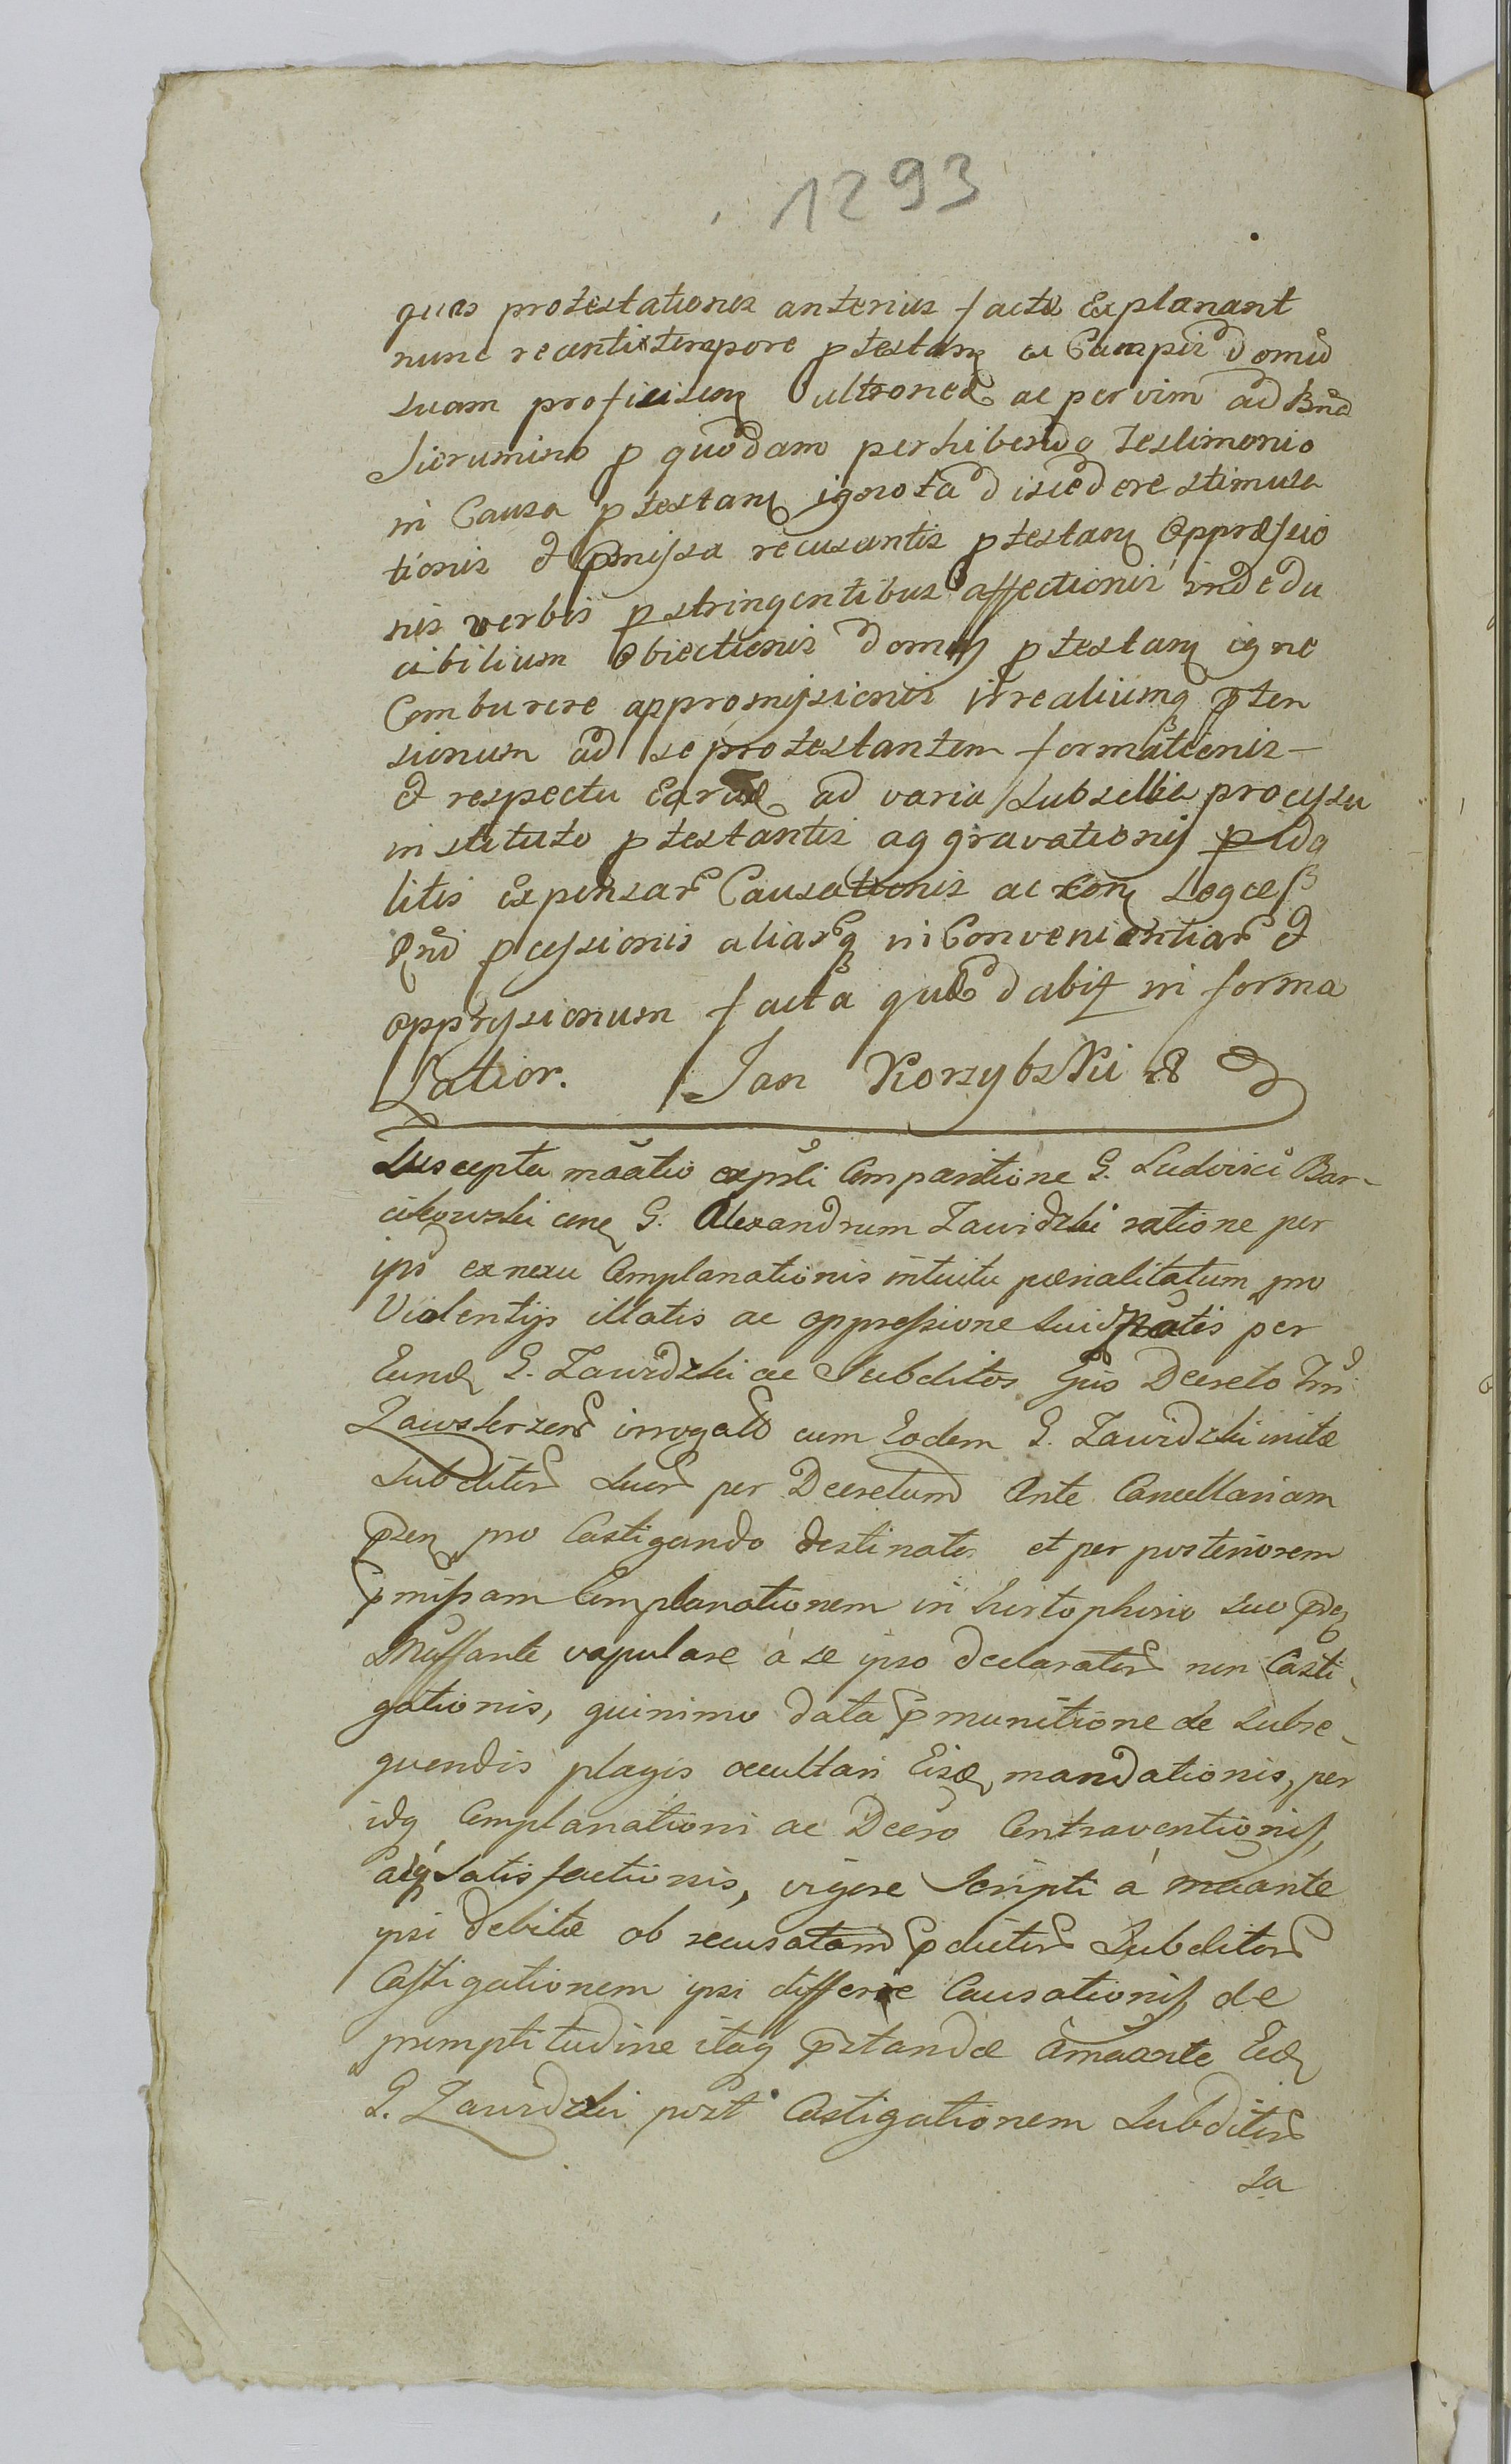 1293
quas protestationes anterius facta Explanant
nunc recenti tempore ptestan ex Campis domũ
suam proficiscen ultroneæ ac per vim ad Bnã
Sierumino p quodam perhibendo Testimonio
in Causa ptestan ignota discedere stimula
tionis et pmissa recusantis ptestan Oppressio
nis verbis pstringentibus affectionis indedu
cibilium Obiectionis domus ptestan igne
Comburere appromissionis irrealiumq pten
sionum ad se protestantem formationis
et respectu Earũd ad varia Subsellia processu
instituto ptestantis aggravationis pidq
litis expensar Causationis ac con Leges
Rni pcessionis aliarq inConvenientiar et
oppressionum facta quæ dabit in forma
Latior. Jan Korzybski
Suscepta mãatio expsti Comparitione G. Ludovici Bar-
cikowski cone G. Alexandrum Zawidzki ratione per
ips ex nexu Complanationis intuitu pœnalitatum pro
Violentijs illatis ac oppressione sui patis per
Eund G. Zawidzki ac Subditos Ejus Decreto
Zawskrzen irrogato cum Eodem G. Zawidzki initæ
Subditor suor per Decretum Ante Cancellariam
pzen pro Castigando destinator et per posteriorem
pmissam Complanationem in suo pdq
vapulare à se ipso declarator non Casti-
gationis, quinimo data pmunitione de subse-
quendis plagis occultari Eisd mandationis, per
idq Complanationi ac Decro Contraventionis,
acq Satisfactionis, vigore Scripti à mãante
ipsi debitæ ob recusatam pdictor Subditor
Castigationem ipsi differre Causationis, de
promptitudine itaq pstandæ à mãante Eid
G. Zawidzki post Castigationem Subditor
Sa